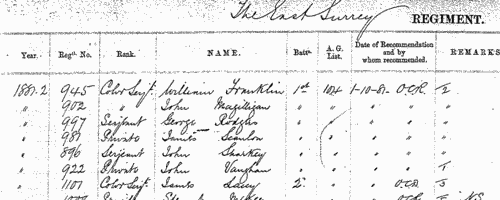 The East Surrey REGIMENT.
Year. Regtl. No. Rank. NAME. Battn. A. G. List. Date of Recommendation and by whom recommended. REMARKS
1881-2 945 Color Serjt. William Franklin 1st 104 1-10-81 O.C.R. 2
" 902 " John Magilligan " " " " "
" 997 Serjeant George Rodgers " " " " "
" 987 Private James Scanlon " " " " "
" 896 Serjeant John Sharkey " " " " "
" 922 Private John Vaughan " " " " 1
" 1101 Color Serjt. James Lacey 2. " " O.C.R. 3